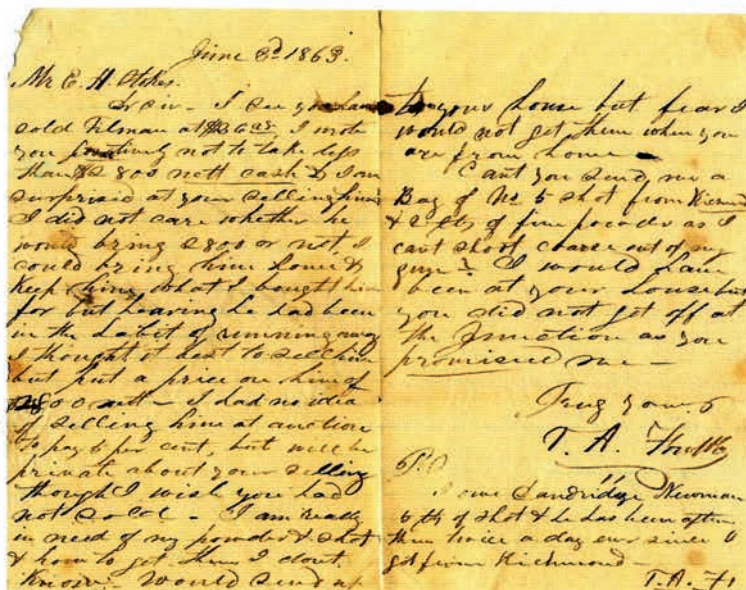 June 3d 1863.
Mr E. H. Stokes.
Dr Sir - I see you have
sold Tilman at I wrote
you positively not to take less
than $2800 nett cash & I am
surprised at your selling him
I did not care whether he
would bring 2800 or not, I
could bring him home &
keep him, what I bought him
for but hearing he had been
in the habit of running away
I thought it best to sell him
but put a price on him of
2800 nett - I had no idea
of selling him at auction
to pay 5 per cent, but will be
private about your selling
though I wish you had
not sold - I am really
in need of my powder & shot
& how to get them I dont
Know - Would send
to your house but fear I
would not get them when you
are from home -
Cant you send me a
Bag of No 5 shot from
& 2 lbs of fine powder as I
cant shoot coarse out of my
gun? I would have
been at your house but
you did not get off at
the Junction as you
promised me -
Truly Yours
T. A.
P.S
I owe Sandridge Newman
5 lb of shot & he has been after
them twice a day ever since I
got from Richmond -
T. A.